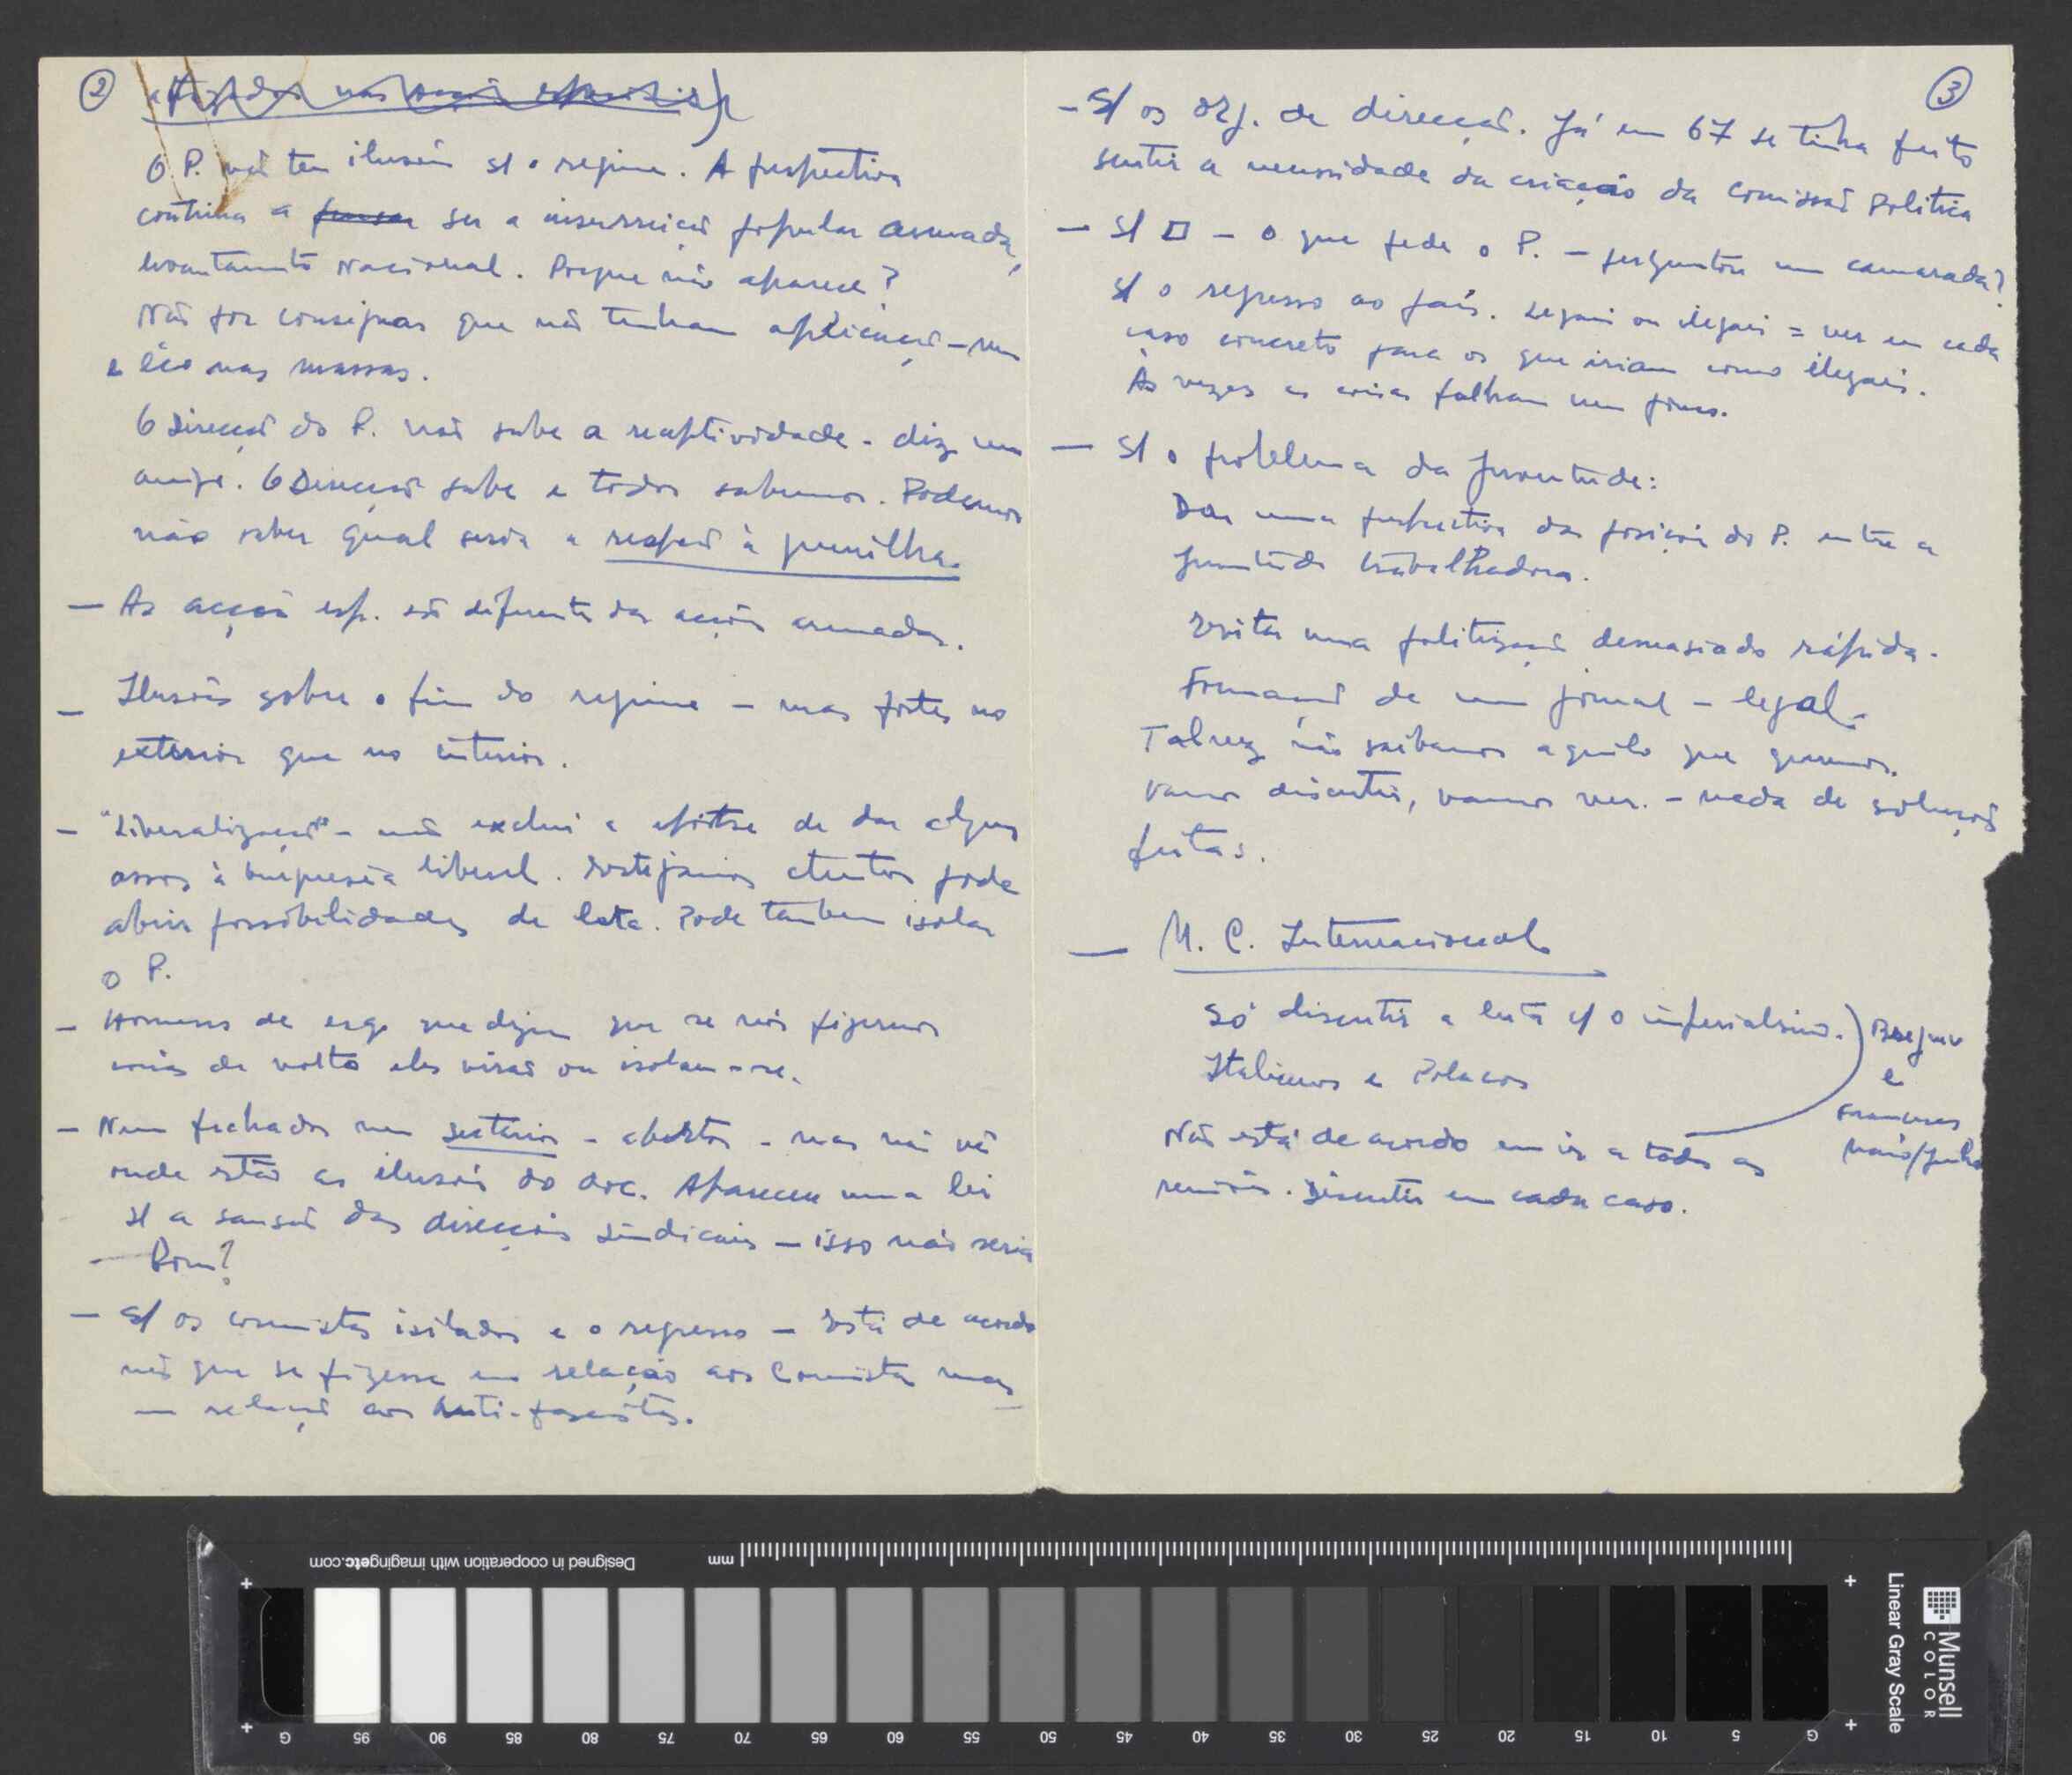 2
O P. não tem ilusões s/ o regime. A perspectiva
continua a pensar ser a insurreição popular armada,
levantamento Nacional. Porque não aparece?
Não por consignas que não tenham aplicação - nem
e éco nas massas.
6 Direcção do P. não sabe a receptividade - diz um
amigo. 6 Direcção sabe e todos sabemos. Podemos
não saber qual seria a resposta à guerrilha.
— As acções esp. são diferentes das acções armadas.
— Ilusões sobre o fim do regime - mas fortes no
exterior que no interior.
— "Liberalização" - não exclui a hipótese de dar alguns
ossos à burguesia liberal. Estejamos atentos pode
abrir possibilidades de luta. Pode também isolar
o P.
— Homens de esq. que dizem que se nós fizermos
coisas de volta eles virão ou isolam-se.
— Nem fechados nem sectários - abertos - mas não vê
onde estão as ilusões do doc. Apareceu uma lei
s/ a sansão das direcções sindicais - isso não seria
- Bom?
— s/ os comunistas isilados e o regresso - Está de acordo
não que se fizesse em relação aos Comunistas mas
em relação aos Anti-fascistas.
3
— S/ os org. de direcção. Já em 67 se tinha feito
sentir a necessidade da criação da Comissão Politica
— s/ □ - o que pede o P. - perguntou um camarada?
s/ o regresso ao país. Legais ou ilegais = ver em cada
caso concreto para os que iriam como ilegais.
Às vezes as coisas falham num pouco.
— s/ o problema da Juventude:
Dar uma perspectiva das posições do P. entre a
juventude trabalhadora.
Evitar uma politização demasiado rápida.
Formação de um jornal - legal.
Talvez não saibamos aquilo que queremos.
Vamos discutir, vamos ver. - nada de soluções
feitas.
— M. C. Internacional
Só discutir a luta c/ o imperialismo.
Italianos e Polacos
Não está de acordo em ir a todas as
reuniões. Discutir em cada caso.
e
Franceses
Maio/Junho
Designed in cooperation with imagingetc.com
mm
G 95 90 85 80 75 70 65 60 55 50 45 40 35 30 25 20 15 10 5 G
Munsell
COLOR
Linear Gray Scale